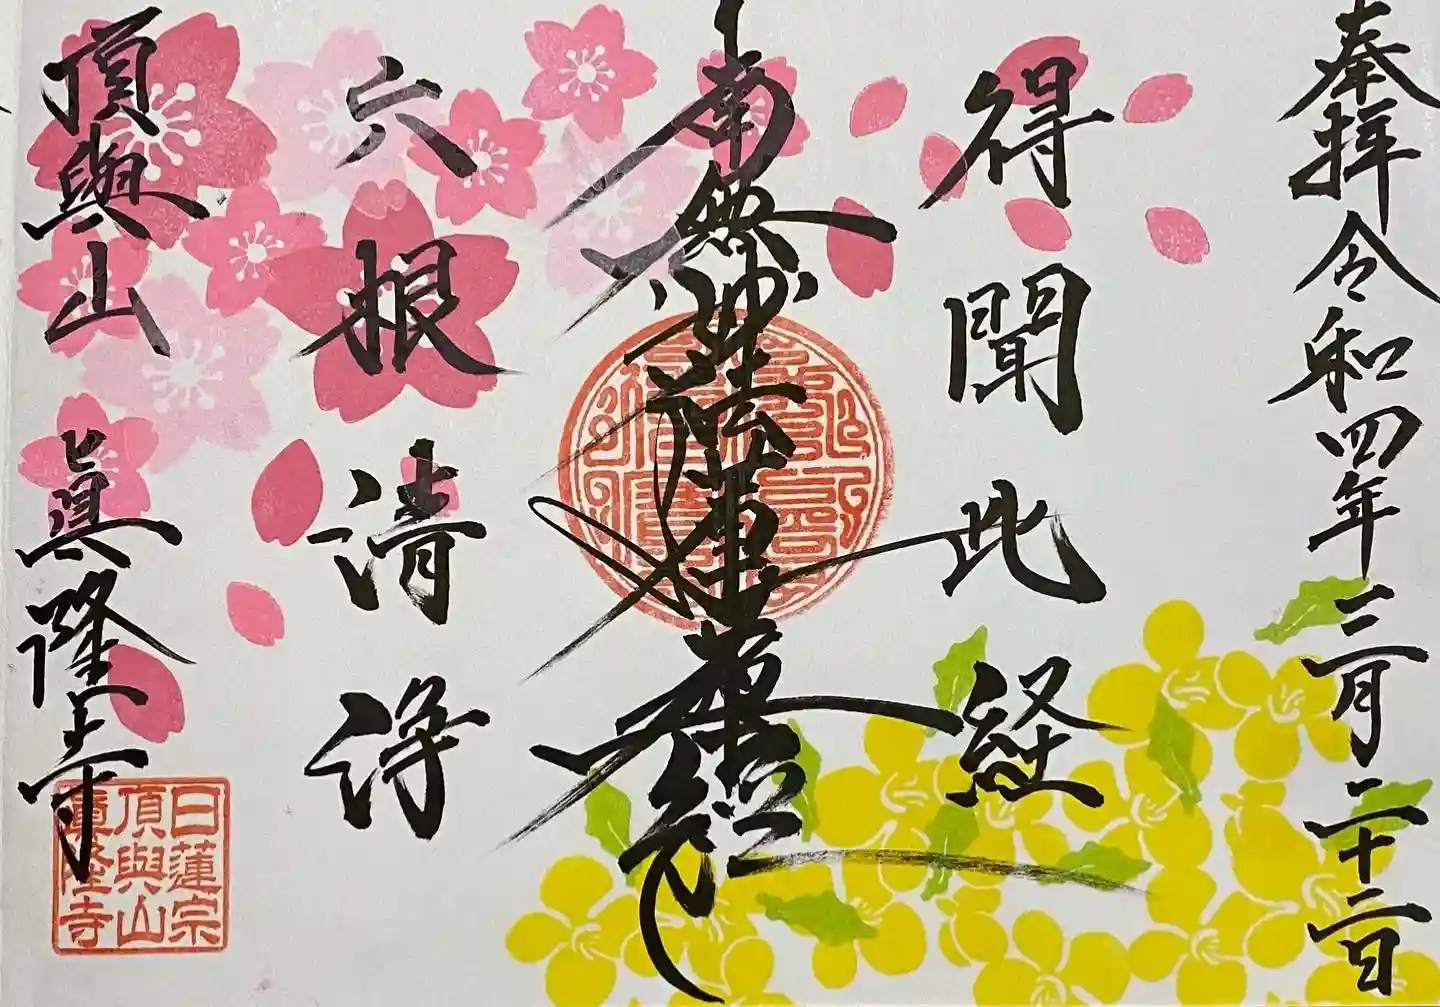 奉拝 令和四年三月二十二日
得聞此経
南無妙法蓮華経
六根清浄
頂與山 眞隆寺
日蓮宗
頂與山
眞隆寺